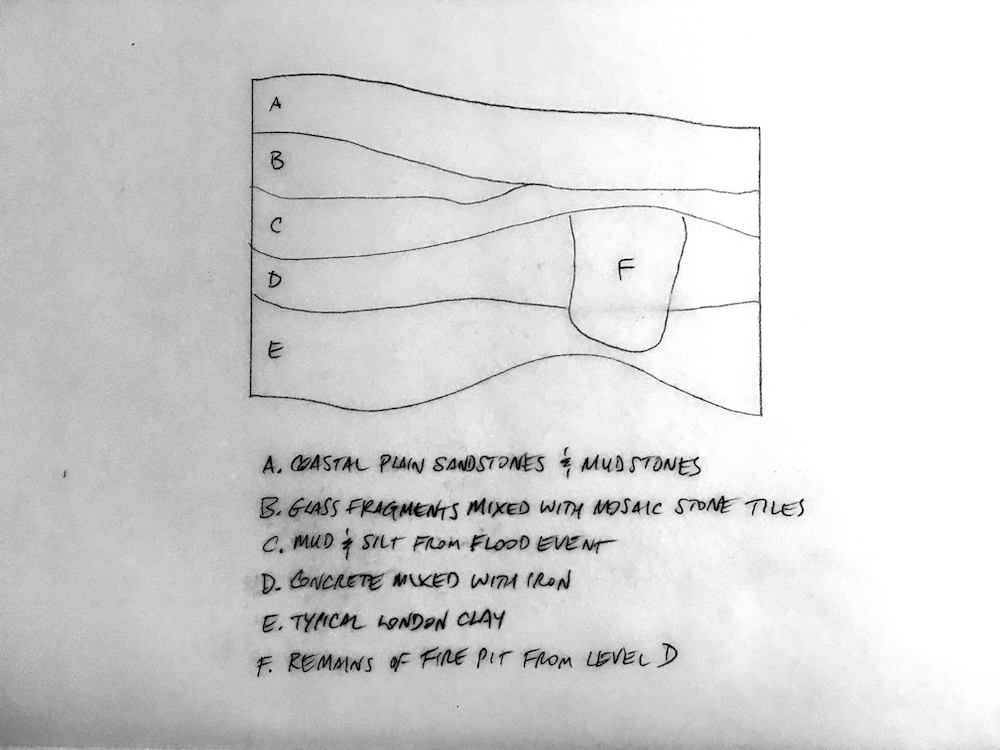 A
B
C
D
F
E
A. COASTAL PLAIN SANDSTONES & MUDSTONES
B. GLASS FRAGMENTS MIXED WITH MOSAIC STONE TILES
C. MUD & SILT FROM FLOOD EVENT
D. CONCRETE MIXED WITH IRON
E. TYPICAL LONDON CLAY
F. REMAINS OF FIRE PIT FROM LEVEL D